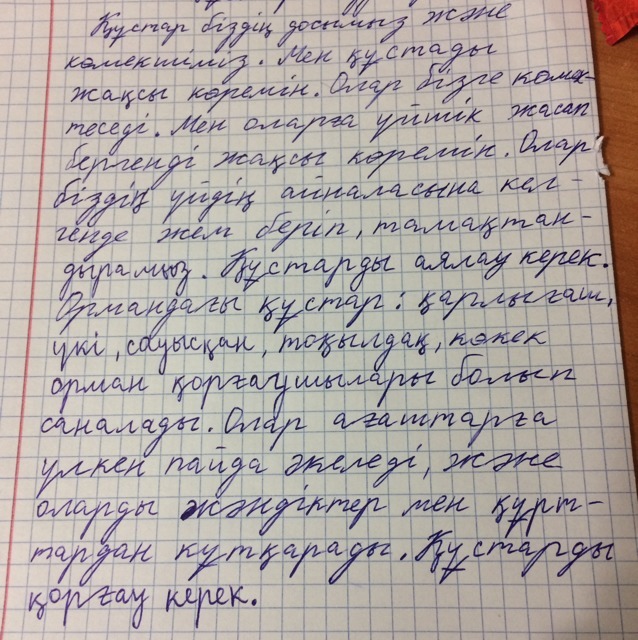 Құстар біздің досымыз және
көмекшіміз. Мен құстады
жақсы көремін. Олар бізге көмек-
теседі. Мен оларға үйшік жасап
бергенді жақсы көремін. Олар
біздің үйдің айналасына кел-
генде жем беріп, тамақтан-
дырамыз. Құстарды аялау керек.
Ормандағы құстар: қарлығаш,
үкі, сауысқан, тоқылдақ, көкек
орман қорғаушылары болып
саналады. Олар ағаштарға
үлкен пайда әкеледі, және
оларды жәндіктер мен құрт-
тардан құтқарады. Құстарды
қорғау керек.